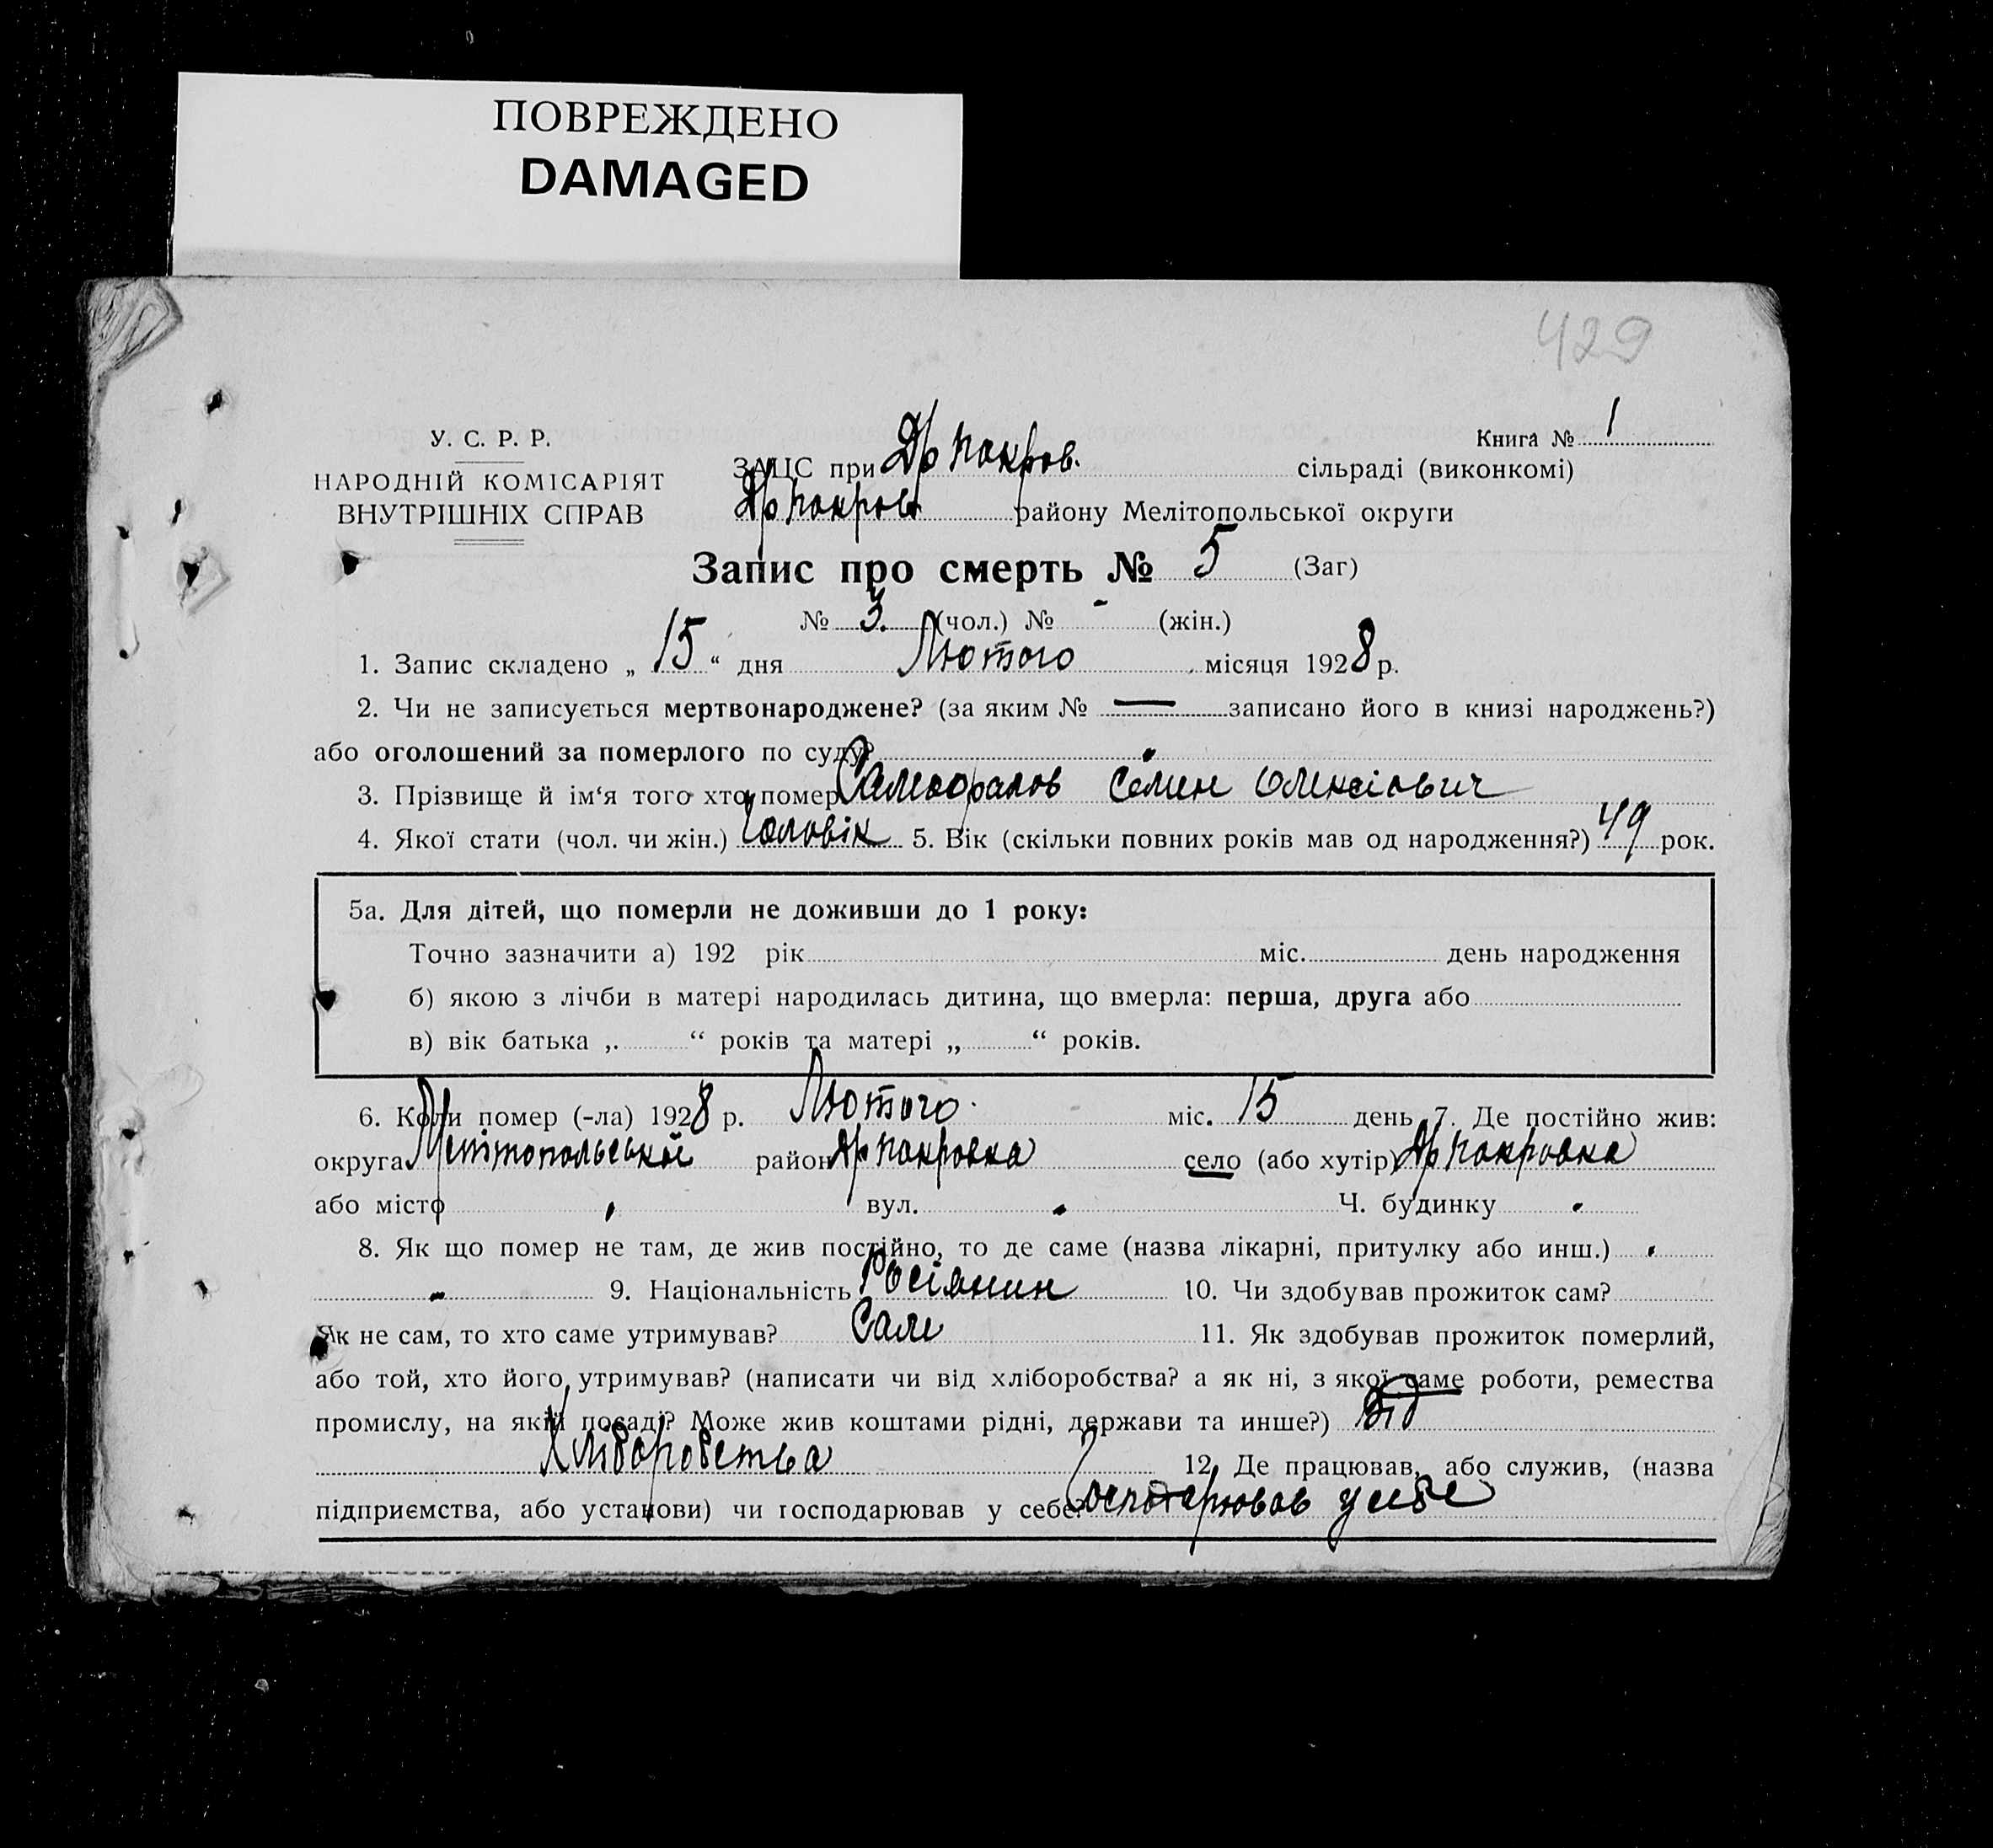 ПОВРЕЖДЕНО
DAMAGED
429
У. С. Р. Р.
НАРОДНІЙ КОМІСАРІЯТ
ВНУТРІШНІХ СПРАВ
Книга № 1
ЗАЦС при Др Покров. сільраді (виконкомі)
Др Покров району Мелітопольської округи
Запис про смерть № 5 (Заг)
№ 3. (чол.) № - (жін.)
1. Запис складено „ 15 “ дня Лютого місяця 1928 р.
2. Чи не записується мертвонароджене? (за яким № — записано його в книзі народжень?)
або оголошений за померлого по суду?
3. Прізвище й ім‘я того хто помер Семен Олексіович
4. Якої стати (чол. чи жін.) Чоловік 5. Вік (скільки повних років мав од народження?) 49 рок.
5а. Для дітей, що померли не доживши до 1 року:
Точно зазначити а) 192 рік міс. день народження
б) якою з лічби в матері народилась дитина, що вмерла: перша, друга або
в) вік батька „ “ років та матері „ “ років.
6. Коли помер (-ла) 1928 р. Лютого міс. 15 день 7. Де постійно жив:
округа Мелітопольської район Др Покровка село (або хутір) Др Покровка
або місто вул. Ч. будинку
8. Як що помер не там, де жив постійно, то де саме (назва лікарні, притулку або инш.)
9. Національність Росіянин 10. Чи здобував прожиток сам?
Як не сам, то хто саме утримував? Сам 11. Як здобував прожиток померлий,
або той, хто його утримував? (написати чи від хліборобства? а як ні, з якої саме роботи, ремества
промислу, на якій посаді? Може жив коштами рідні, держави та инше?) Від
Хліборобства 12. Де працював, або служив, (назва
підприємства, або установи) чи господарював у себе? Господарював у себе